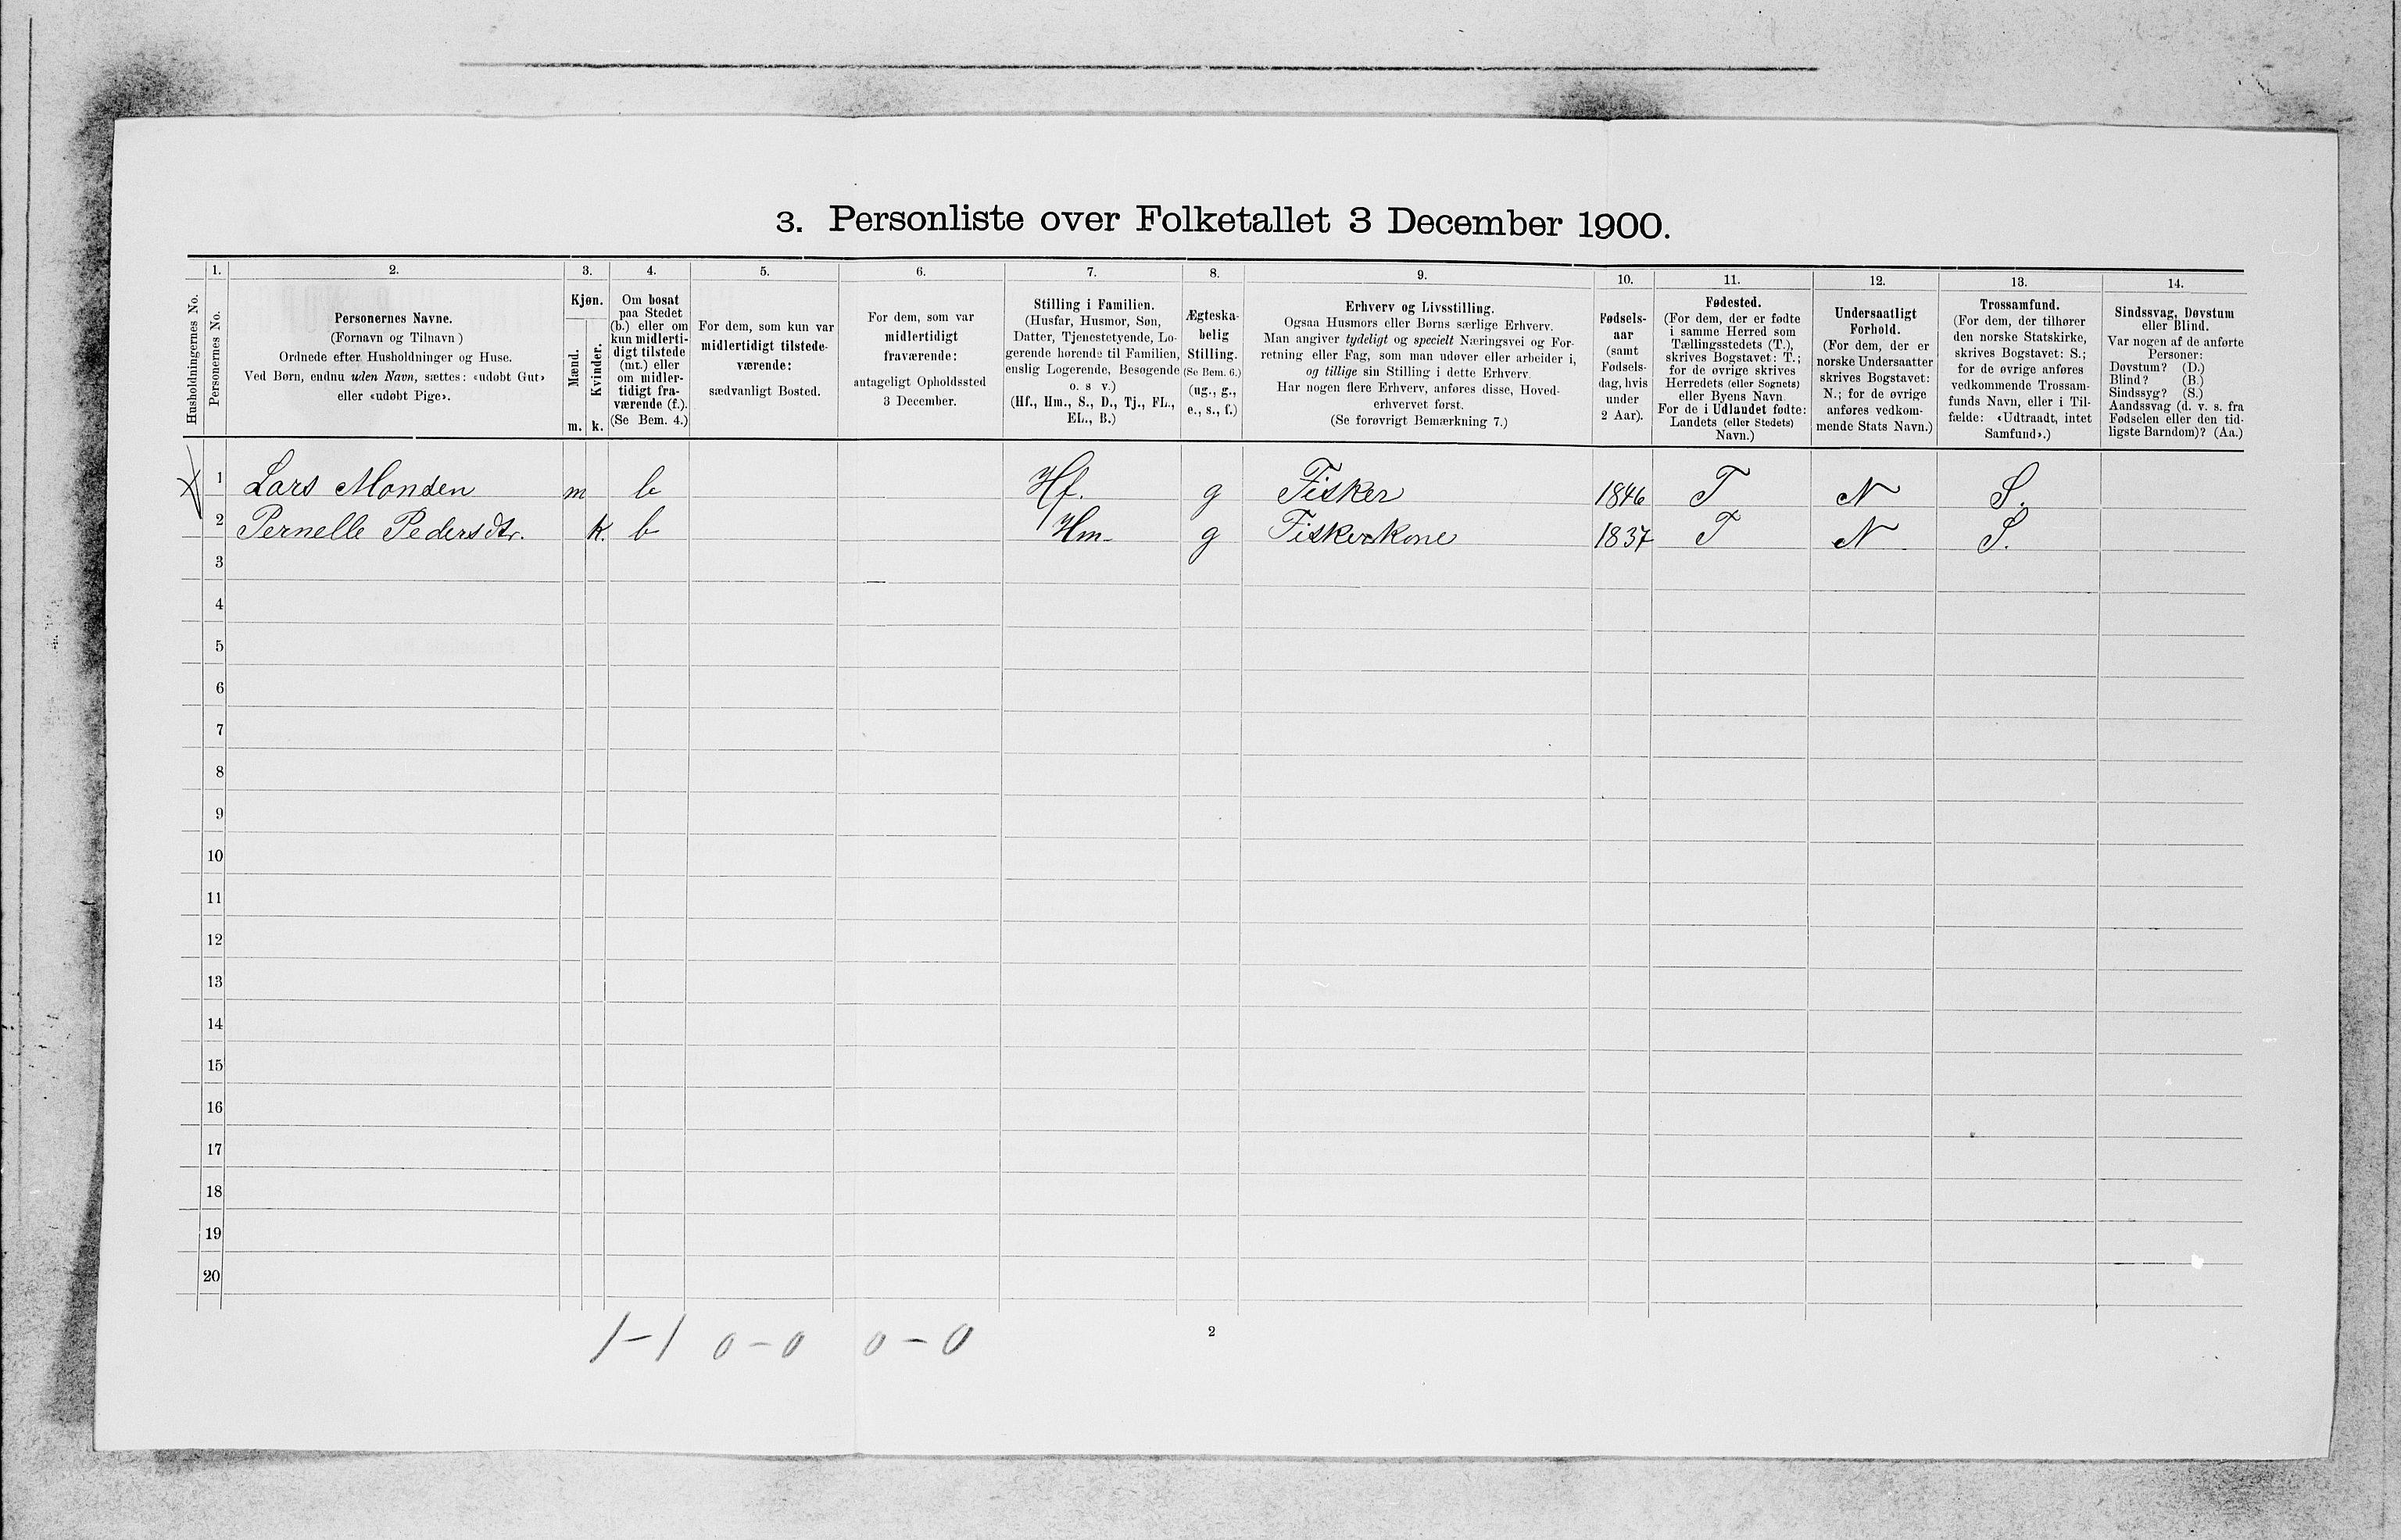 3. Personliste over Folketallet 3 December 1900.
1. 2. 3. 4. 5. 6. 7. 8. 9. 10. 11. 12. 13. 14.
Husholdningernes No.
Personernes No.
Personernes Navne.
(Fornavn og Tilnavn)
Ordnede efter Husholdninger og Huse.
Ved Børn, endnu uden Navn, sættes: «udøbt Gut»
eller «udøbt Pige».
Kjøn.
Mænd.
Kvinder.
m. k.
Om bosat
paa Stedet
(b.) eller om
kun midlerti-
digt tilstede
(mt.) eller
om midler-
tidigt fra-
værende (f.).
(Se Bem. 4.)
For dem, som kun var
midlertidigt tilstede-
værende:
sædvanligt Bosted.
For dem, som var
midlertidigt
fraværende:
antageligt Opholdssted
3 December.
Stilling i Familien.
(Husfar, Husmor, Søn,
Datter, Tjenestetyende, Lo-
gerende hørende til Familien,
enslig Logerende, Besøgende
o. s v.)
(Hf., Hm., S., D., Tj., FL.,
EL., B.)
Ægteska-
belig
Stilling.
(Se Bem. 6.)
(ug., g.,
e., s., f.)
Erhverv og Livsstilling.
Ogsaa Husmors eller Børns særlige Erhverv.
Man angiver tydeligt og specielt Næringsvei og For-
retning eller Fag, som man udøver eller arbeider i,
og tillige sin Stilling i dette Erhverv.
Har nogen flere Erhverv, anføres disse, Hoved-
erhvervet først.
(Se forøvrigt Bemærkning 7.)
Fødsels-
aar
(samt
Fødsels-
dag, hvis
under
2 Aar).
Fødested.
(For dem, der er fødte
i samme Herred som
Tællingsstedets (T.),
skrives Bogstavet: T.;
for de øvrige skrives
Herredets (eller Sognets)
eller Byens Navn.
For de i Udlandet fødte:
Landets (eller Stedets)
Navn.)
Undersaatligt
Forhold.
(For dem, der er
norske Undersaatter
skrives Bogstavet:
N.; for de øvrige
anføres vedkom-
mende Stats Navn.)
Trossamfund.
(For dem, der tilhører
den norske Statskirke,
skrives Bogstavet: S.;
for de øvrige anføres
vedkommende Trossam-
funds Navn, eller i Til-
fælde: «Udtraadt, intet
Samfund».)
Sindssvag, Døvstum
eller Blind.
Var nogen af de anførte
Personer:
Døvstum? (D.)
Blind? (B.)
Sindssyg? (S.)
Aandssvag (d. v. s. fra
Fødselen eller den tid-
ligste Barndom)? (Aa.)
1 Lars Monsen m b Hf. g Fisker 1846 T N S.
2 Pernelle Pedersdtr. k. b Hm. g Fiskerkone 1837 T N S.
3
4
5
6
7
8
9
10
11
12
13
14
15
16
17
18
19
20
1-1 0-0 0-0
2